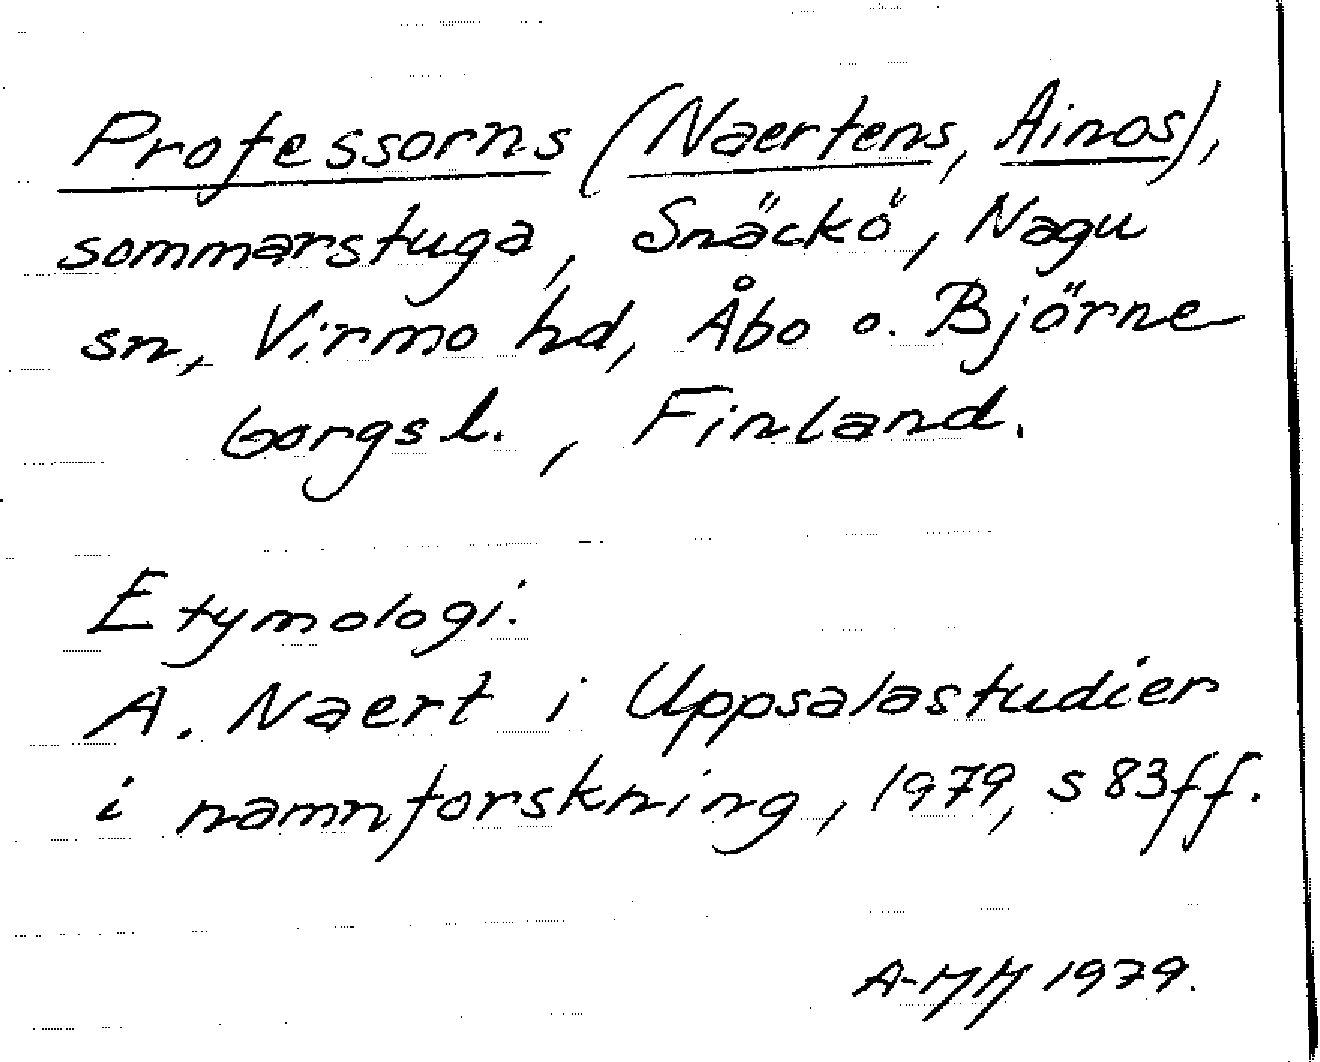 Professorns (Naertens, Ainos),
sommarstuga, Snäckö, Nagu
sn, Virmo hd, Åbo o. Björne
borgs l., Finland.
Etymologi.
A. Naert i Uppsalastudier
i namnforskning, 1979, s 83ff.
1979.